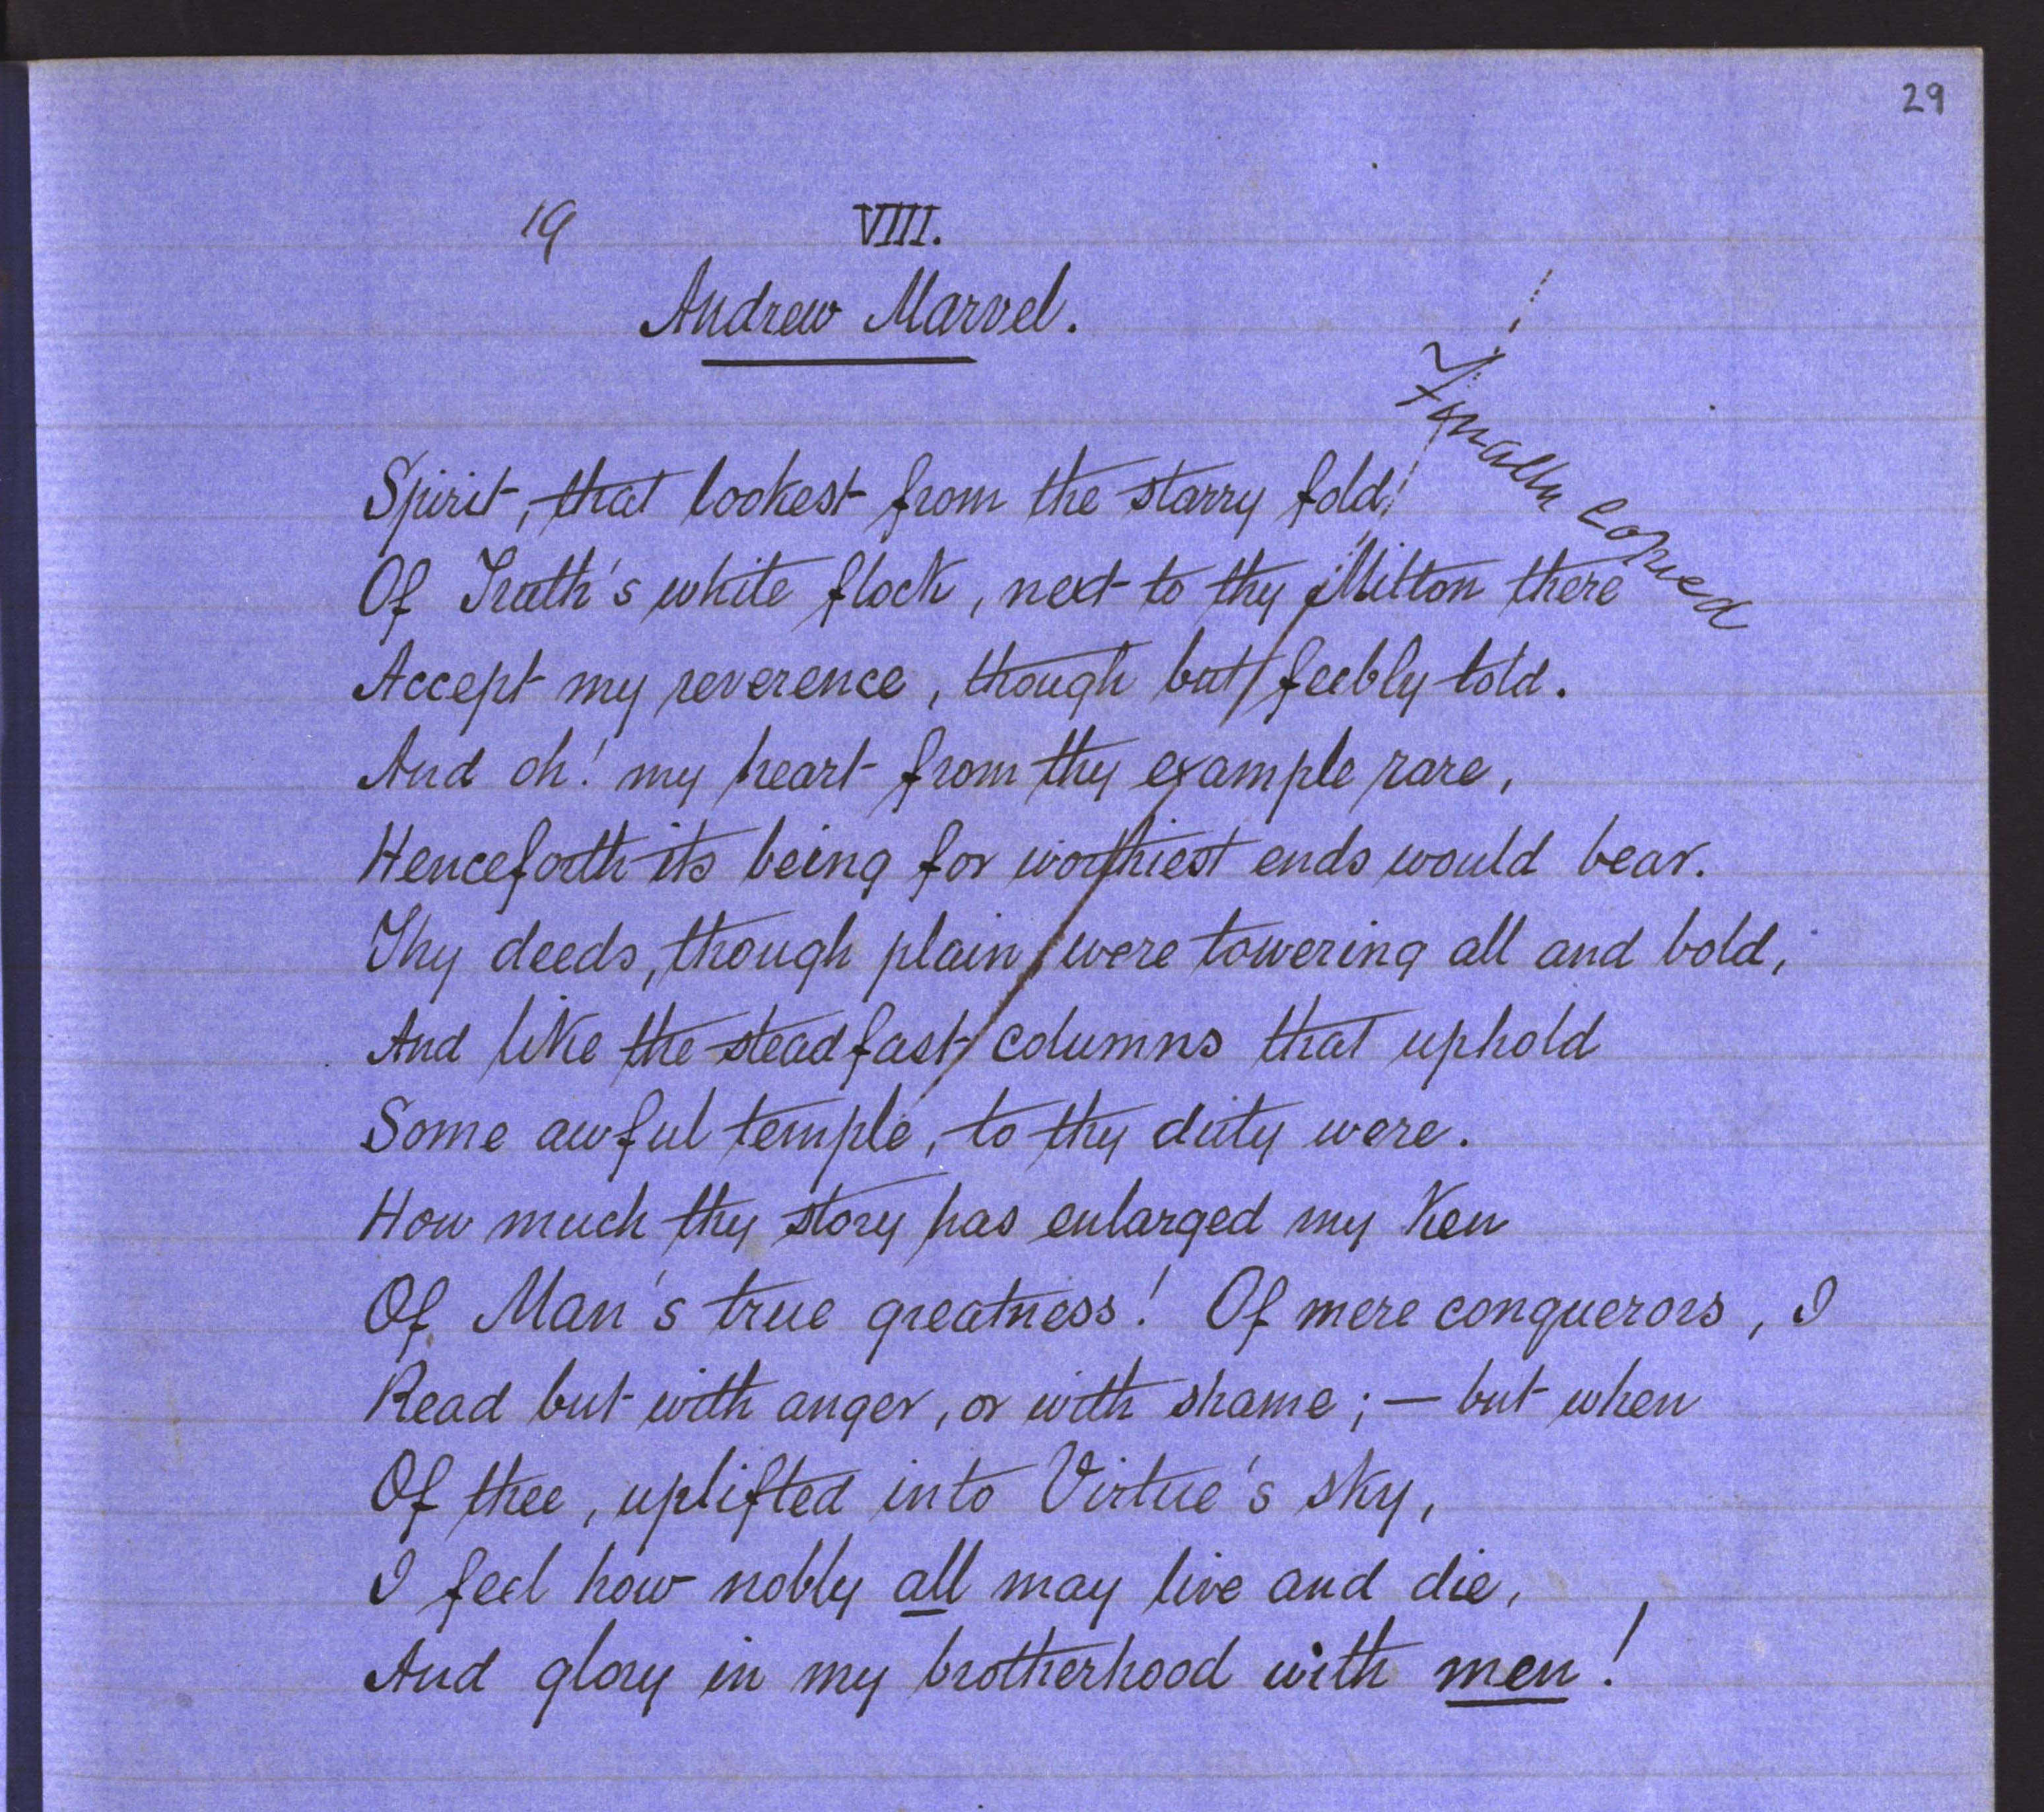 29
19 VIII.
Andrew Marvel.
Finally copied
Spirit, that lookest from the starry fold,
Of Truth's white flock, next to thy Milton there
Accept my reverence, though but feebly told.
And oh! my heart from thy example rare,
Henceforth its being for worthiest ends would bear.
Thy deeds, though plain, were towering all and bold,
And like the steadfast columns that uphold
Some awful temple, to thy duty were.
How much thy story has enlarged my Ken
Of Man's true greatness! Of mere conquerors, I
Read but with anger, or with shame; — but when
Of thee, uplifted into Virtue's sky,
I feel how nobly all may live and die,
And glory in my brotherhood with men!